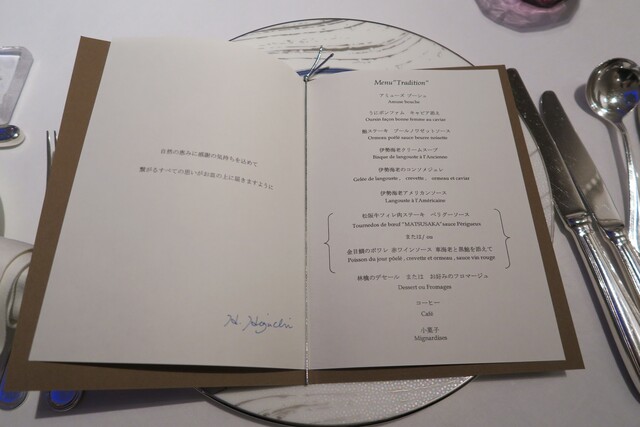 自然の恵みに感謝の気持ちを込めて
繋がるすべての思いがお皿の上に届きますように
H. Higuchi
Menu "Tradition"
アミューズ ブーシュ
Amuse bouche
うにボンファム キャビア添え
Oursin façon bonne femme au caviar
鮑ステーキ ブールノワゼットソース
Ormeau poêlé sauce beurre noisette
伊勢海老クリームスープ
Bisque de langouste à l'Ancienne
伊勢海老のコンソメジュレ
Gelée de langouste , crevette , ormeau et caviar
伊勢海老アメリカンソース
Langouste à l'Américaine
松阪牛フィレ肉ステーキ ペリグーソース
Tournedos de bœuf "MATSUSAKA" sauce Périgueux
または/ ou
金目鯛のポワレ 赤ワインソース 車海老と黒鮑を添えて
Poisson du jour poêlé , crevette et ormeau , sauce vin rouge
林檎のデセール または お好みのフロマージュ
Dessert ou Fromages
コーヒー
Café
小菓子
Mignardises